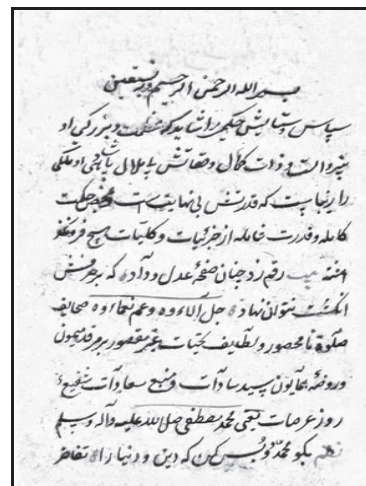 بسم الله الرحمن الرحیم و به نستعین
سپاس و ستایش حکیمی را شاید که عظمت و بزرگی او
و ذات کمال و صفاتش بی
را زیباست که قدرتش بی نهایت است
کامله و قدرت شامله از جزئیات و کلیات هیچ فرو نگذ
اشته رقم زد چنان صفحهٔ عدل و داده که بر حرفش
انگشت نتوان نهاده جل آلاءوه و عم نعماءوه صحایف
صلوة نامحصور و لطایف تحیات غیر مقصور بر مرقد همیون
و روضهٔ همایون سید سادات و منبع سعادات شفیع
روز عرصات یعنی محمد مصطفی صلی الله علیه و آله وسلم
نظم بگو محمد و بس کن که دین و دنیا را تفاخر